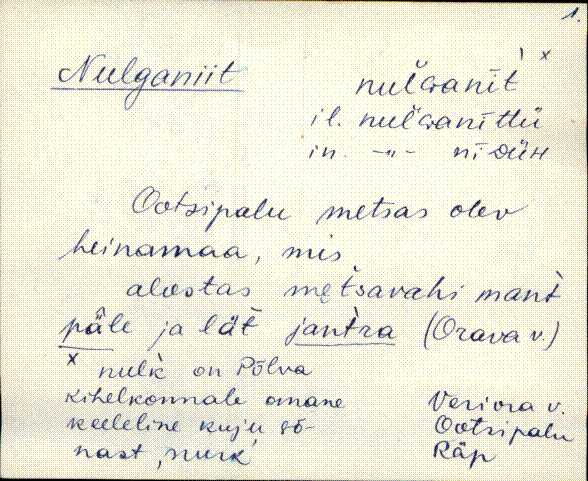 1.
Nulganiit
nuĺGanīt̀ ×
il. nuĺGanīttü
in. -„- nīDüH
Ootsipalu metsas olev
heinamaa, mis
alostas mẹtsavahi mant̀
päle ja lät̀ jantra (Orava v.)
× nulk̀ on Põlva
kihelkonnale omane
keeleline kuju sõ-
nast 'nurk'
Veriora v.
Ootsipalu
Räp